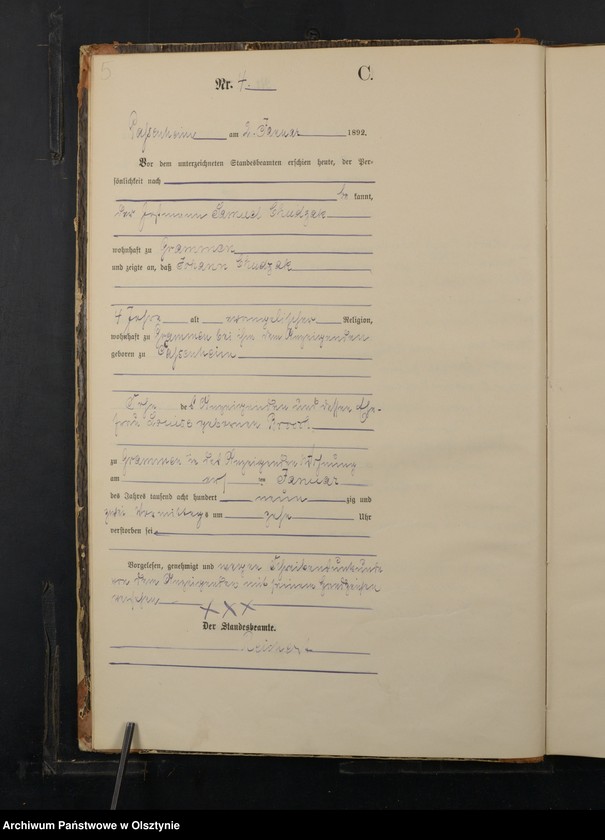 5
Nr. 4.
C.
Passenheim am 2. Januar 1892.
Vor dem unterzeichneten Standesbeamten erschien heute, der Per-
sönlichkeit nach
be kannt,
der Samuel Chudzak
wohnhaft zu Grammen
und zeigte an, daß Johann Chudzak
4 Jahre alt evangelischer Religion,
wohnhaft zu Grammen bei ihm dem Anzeigenden
geboren zu Passenheim
Sohn des Anzeigenden und dessen Ehe-
frau Louise geborenen
zu Grammen in des Anzeigenden Wohnung
am im Januar
des Jahres tausend acht hundert neun zig und
zwei Vormittags um zehn Uhr
verstorben sei
Vorgelesen, genehmigt und wegen Schreibensunkunde
von dem Anzeigenden mit seinem Handzeichen
versehen.
XXX
Der Standesbeamte.
Archiwum Państwowe w Olsztynie